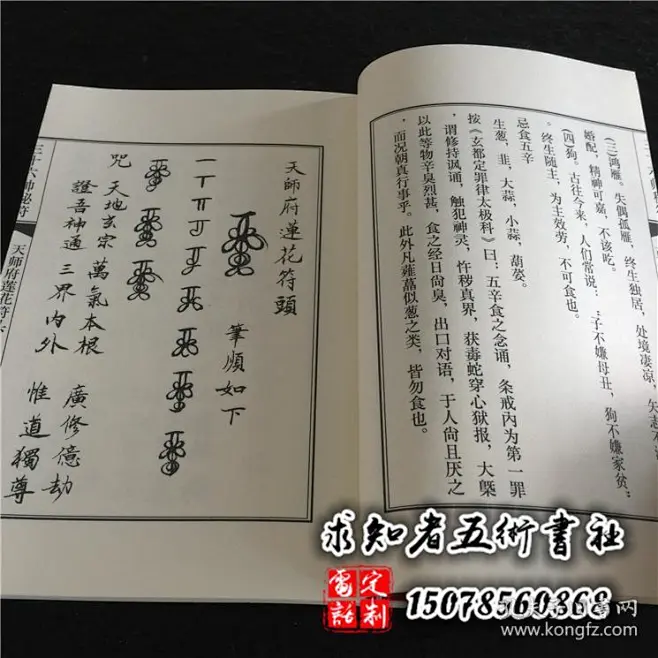 (三)鸿雁。失偶孤雁，终生独居，处境凄凉，矢志不
婚配，精神可嘉，不该吃。
(四)狗。古往今来，人们常说：“子不嫌母丑，狗不嫌家贫。”
终生随主，为主效劳，不可食也。
忌食五辛
生葱，韭，大蒜，小蒜，葫荽。
按《玄都定罪律太极科》曰：五辛食之念诵，条戒内为第一罪
，谓修持讽诵，触犯神灵，忤秽真界，获毒蛇穿心狱报，大槩
以此等物辛臭烈甚，食之经日尚臭，出口对语，于人尚且厌之
，而况朝真行事乎。此外凡薤藠似葱之类，皆勿食也。
天師府蓮花符頭
筆順如下
咒 天地玄宗 萬氣本根 廣修億劫
證吾神通 三界内外 惟道獨尊
三十六師秘符
天师府莲花符
求知者五術書社
定制
電話
15078560868
www.kongfz.com